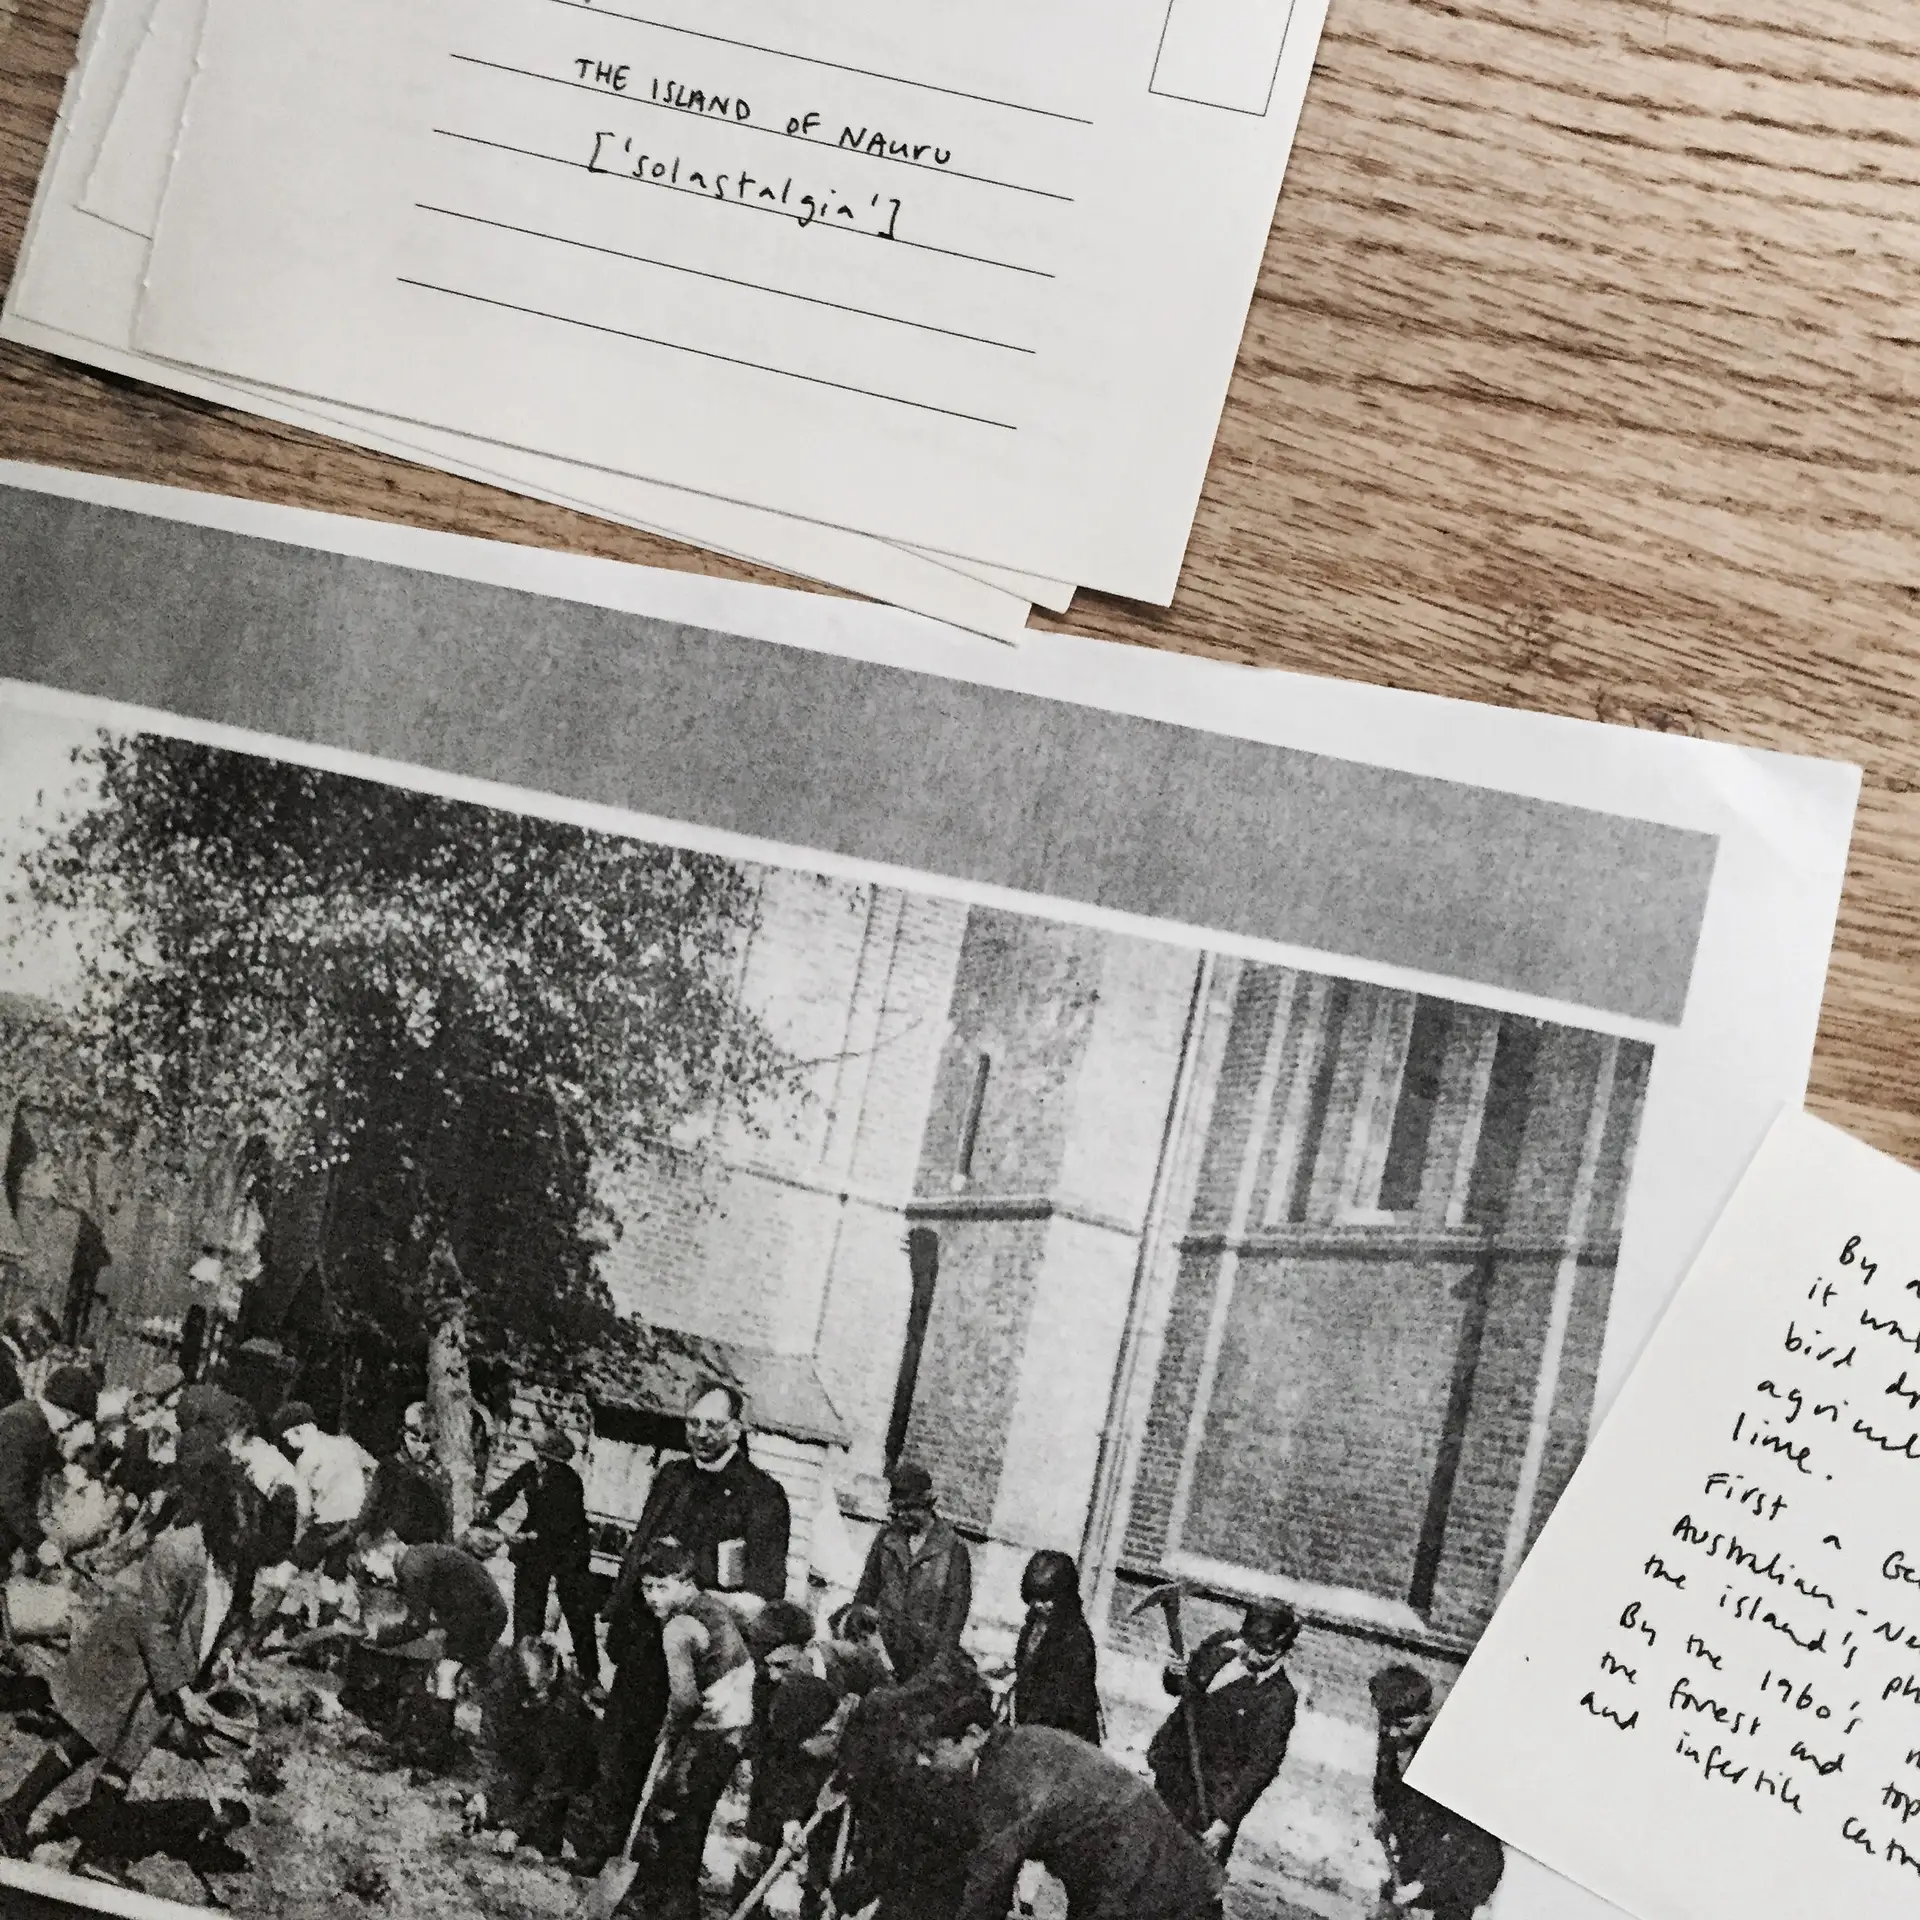 THE ISLAND OF NAURU
['solastalgia']
By a
it was
bird dr
agricul
lime.
First a Ge
Australian-Ne
the island's ph
By the 1960's m
the forest and top
and infertile centr